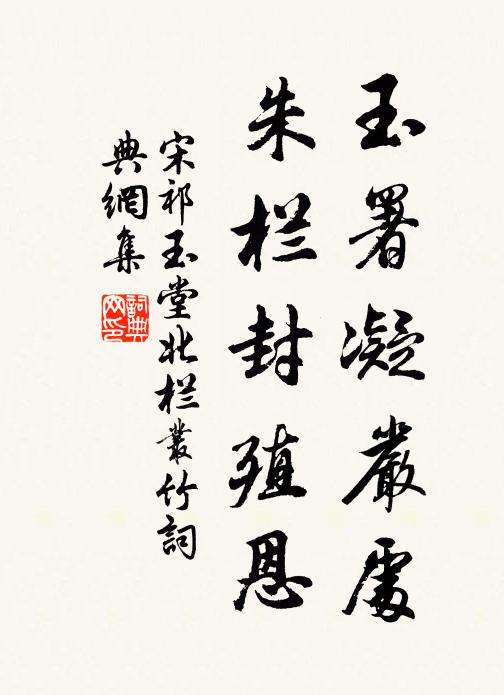 玉署凝嚴處
朱栏封殖恩
宋祁玉堂北栏叢竹詞
典網集
詞典
网印